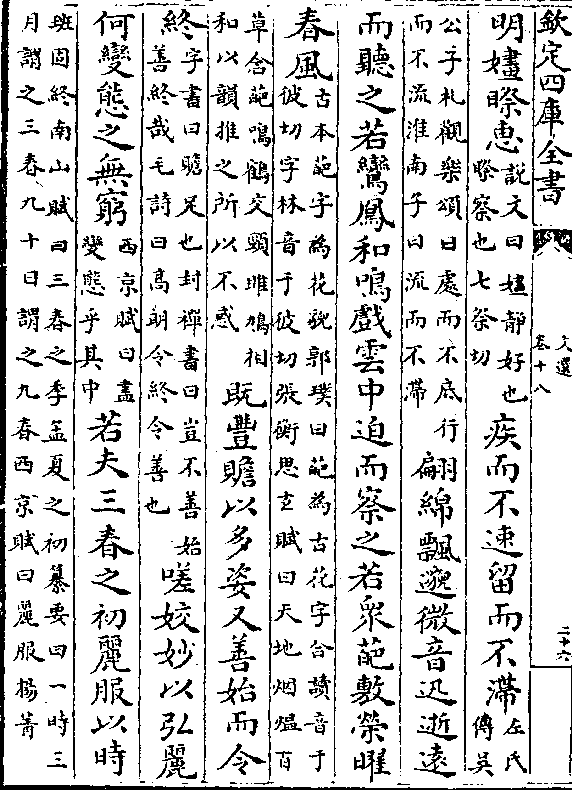 欽定四庫全書
文選
卷十八
二十六
明嫿㬠惠
說文曰嫿静好也
㬠察也七祭切
疾而不速留而不滯
左氏
傳吳
公子札觀樂頌曰處而不底行
而不流淮南子曰流而不滯
翩綿飄邈微音迅逝遠
而聽之若鸞鳳和鳴戲雲中迫而察之若衆葩敷榮曜
春風
古本葩字為花貌郭璞曰葩為古花字含讀音于
彼切字林音于彼切張衡思玄賦曰天地烟熅百
草含葩鳴鶴交頸雎鳩相
和以韻推之所以不惑
既豐贍以多姿又善始而令
終
字書曰贍足也封禪書曰豈不善始
善終哉毛詩曰高朗令終令善也
嗟姣妙以弘麗
何變態之無窮
西京賦曰盡
變態乎其中
若夫三春之初麗服以時
班固終南山賦曰三春之季孟夏之初纂要曰一時三
月謂之三春九十日謂之九春西京賦曰麗服揚菁